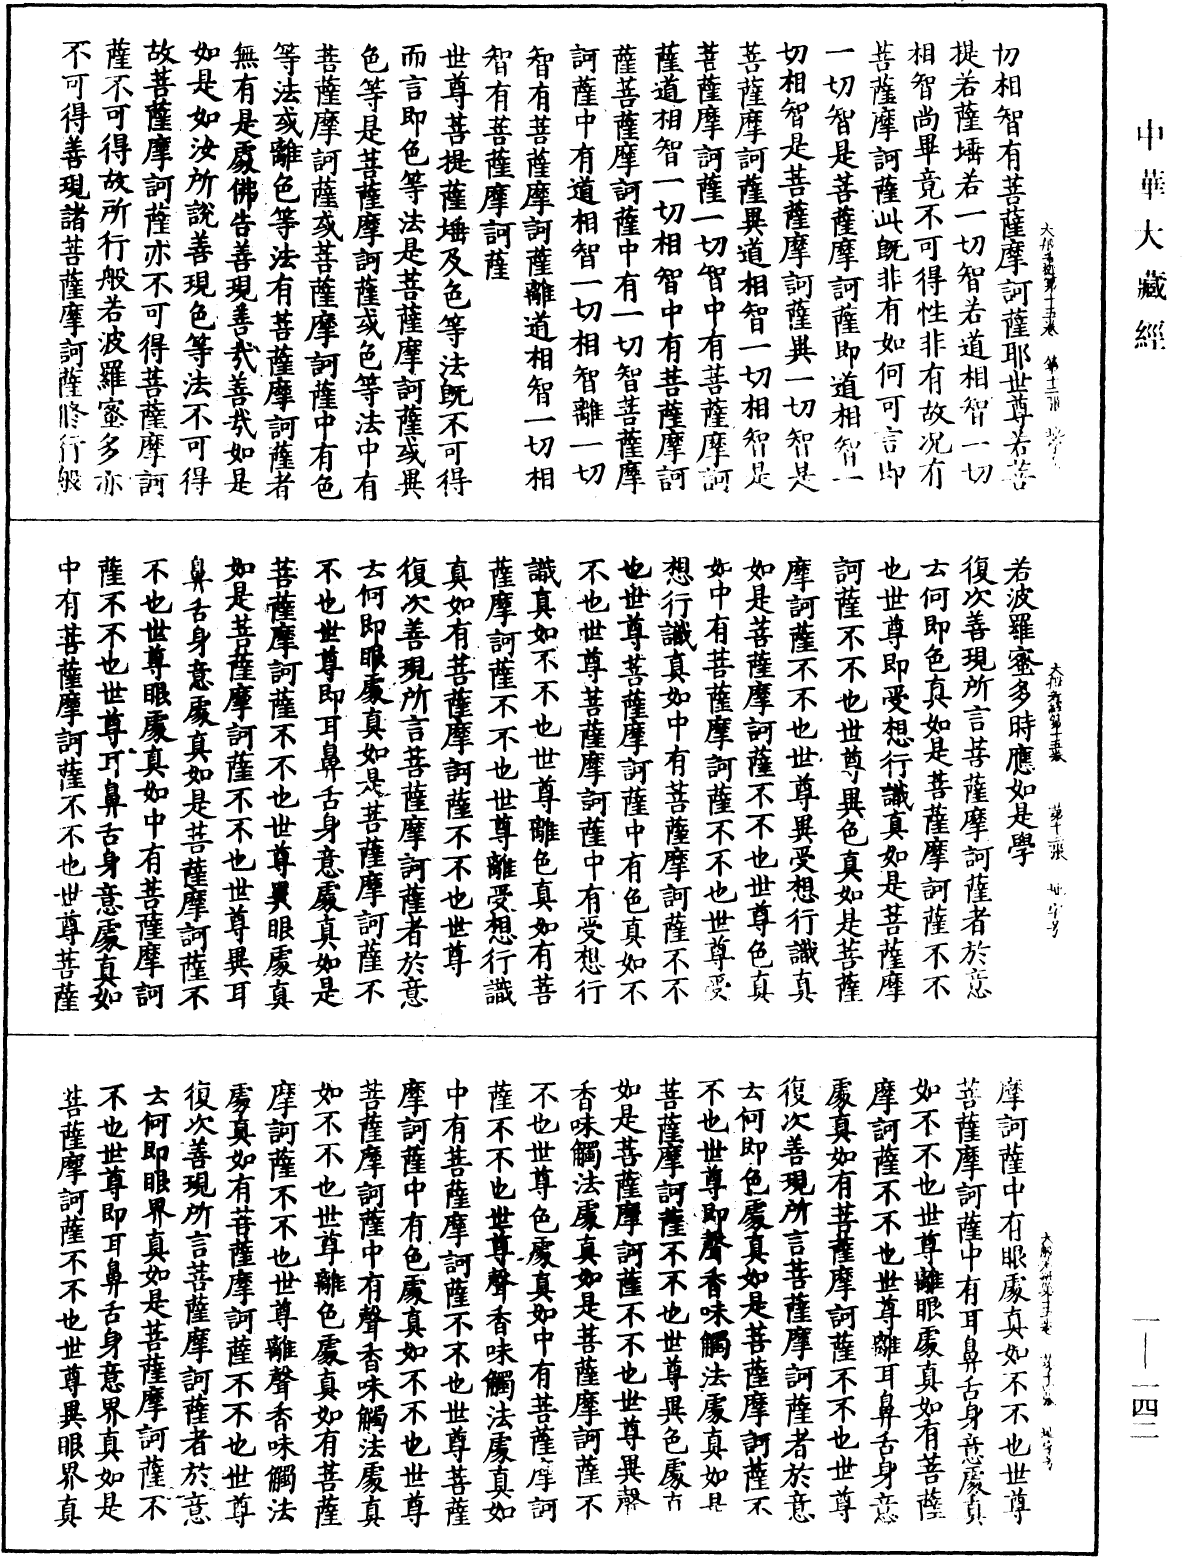 中華大藏經
切相智有菩薩摩訶薩耶世尊若菩
提若薩埵若一切智若道相智一切
相智尚畢竟不可得性非有故况有
菩薩摩訶薩此既非有如何可言即
一切智是菩薩摩訶薩即道相智一
切相智是菩薩摩訶薩異一切智是
菩薩摩訶薩異道相智一切相智是
菩薩摩訶薩一切智中有菩薩摩訶
薩道相智一切相智中有菩薩摩訶
薩菩薩摩訶薩中有一切智菩薩摩
訶薩中有道相智一切相智離一切
智有菩薩摩訶薩離道相智一切相
智有菩薩摩訶薩
世尊菩提薩埵及色等法既不可得
而言即色等法是菩薩摩訶薩或異
色等是菩薩摩訶薩或色等法中有
菩薩摩訶薩或菩薩摩訶薩中有色
等法或離色等法有菩薩摩訶薩者
無有是處佛告善現善哉善哉如是
如是如汝所說善現色等法不可得
故菩薩摩訶薩亦不可得菩薩摩訶
薩不可得故所行般若波羅蜜多亦
不可得善現諸菩薩摩訶薩修行般
若波羅蜜多時應如是學
復次善現所言菩薩摩訶薩者於意
云何即色真如是菩薩摩訶薩不不
也世尊即受想行識真如是菩薩摩
訶薩不不也世尊異色真如是菩薩
摩訶薩不不也世尊異受想行識真
如是菩薩摩訶薩不不也世尊色真
如中有菩薩摩訶薩不不也世尊受
想行識真如中有菩薩摩訶薩不不
也世尊菩薩摩訶薩中有色真如不
不也世尊菩薩摩訶薩中有受想行
識真如不不也世尊離色真如有菩
薩摩訶薩不不也世尊離受想行識
真如有菩薩摩訶薩不不也世尊
復次善現所言菩薩摩訶薩者於意
云何即眼處真如是菩薩摩訶薩不
不也世尊即耳鼻舌身意處真如是
菩薩摩訶薩不不也世尊異眼處真
如是菩薩摩訶薩不不也世尊異耳
鼻舌身意處真如是菩薩摩訶薩不
不也世尊眼處真如中有菩薩摩訶
薩不不也世尊耳鼻舌身意處真如
中有菩薩摩訶薩不不也世尊菩薩
摩訶薩中有眼處真如不不也世尊
菩薩摩訶薩中有耳鼻舌身意處真
如不不也世尊離眼處真如有菩薩
摩訶薩不不也世尊離耳鼻舌身意
處真如有菩薩摩訶薩不不也世尊
復次善現所言菩薩摩訶薩者於意
云何即色處真如是菩薩摩訶薩不
不也世尊即聲香味觸法處真如是
菩薩摩訶薩不不也世尊異色處真
如是菩薩摩訶薩不不也世尊異聲
香味觸法處真如是菩薩摩訶薩不
不也世尊色處真如中有菩薩摩訶
薩不不也世尊聲香味觸法處真如
中有菩薩摩訶薩不不也世尊菩薩
摩訶薩中有色處真如不不也世尊
菩薩摩訶薩中有聲香味觸法處真
如不不也世尊離色處真如有菩薩
摩訶薩不不也世尊離聲香味觸法
處真如有菩薩摩訶薩不不也世尊
復次善現所言菩薩摩訶薩者於意
云何即眼界真如是菩薩摩訶薩不
不也世尊即耳鼻舌身意界真如是
菩薩摩訶薩不不也世尊異眼界真
一—一四二